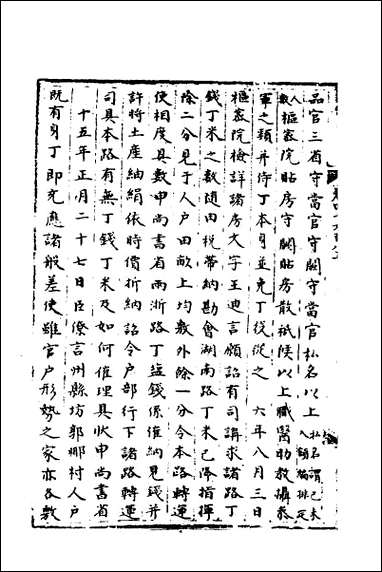 品官三省守當官守闕守當官私名以上私名謂已未入額編排定
人數樞密院貼房守闕貼房散祗候以上職醫助教攝求
軍之類并侍丁本身並免丁役從之　六年八月三日
樞密院檢詳諸房文字王迪言頗詔有司講求諸路丁
錢丁米之數隨內稅帶納勘會湖南路丁米已降指揮
除二分見于人戶田畝上均敷外餘一分令本路轉運
使相度具數申尚書省兩浙路丁塩錢係催納見錢并
許將土產紬絹依時價折納詔令戶部行下諸路轉運
司具本路有無丁錢丁米及如何催理具狀申尚書省
十五年正月二十七日臣僚言州縣坊郭鄉村人戶
既有身丁即充應諸般差使雖官戶形勢之家亦各敷